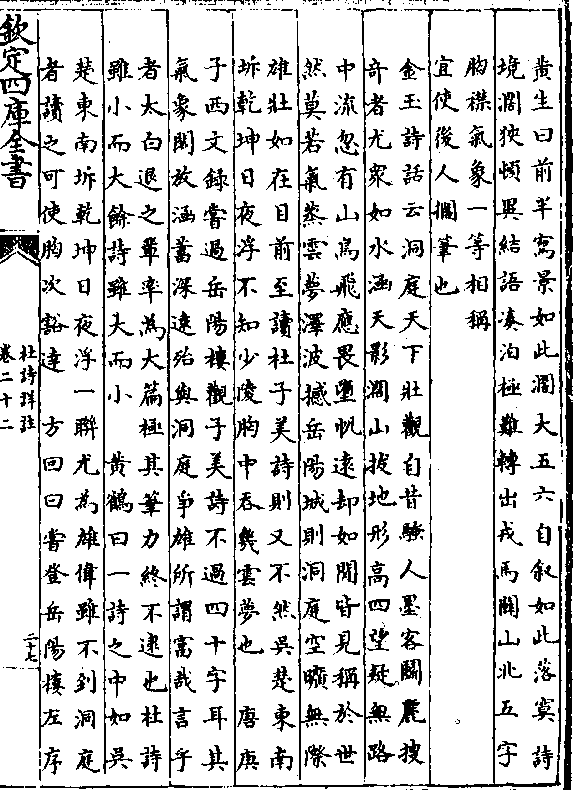 黄生曰前半寫景如此濶大五六自叙如此落寞詩
境濶狹頓異結語湊泊極難轉出戎馬關山北五字
胸襟氣象一等相稱
宜使後人擱筆也
金玉詩話云洞庭天下壯觀自昔騷人墨客鬭麗搜
奇者尤衆如水涵天影濶山拔地形高四望疑無路
中流忽有山鳥飛應畏墮帆遠却如閒皆見稱於世
然莫若氣蒸雲夢澤波撼岳陽城則洞庭空曠無際
雄壯如在目前至讀杜子美詩則又不然吳楚東南
坼乾坤日夜浮不知少陵胸中吞幾雲夢也　唐庚
子西文録嘗過岳陽樓觀子美詩不過四十字耳其
氣象閎放涵蓄深遠殆與洞庭爭雄所謂富哉言乎
者太白退之輩率為大篇極其筆力終不逮也杜詩
雖小而大餘詩雖大而小　黄鶴曰一詩之中如吳
楚東南坼乾坤日夜浮一聯尤為雄偉雖不到洞庭
者讀之可使胸次豁達　方回曰嘗登岳陽樓左序
欽定四庫全書
杜詩詳註
卷二十二
二十七